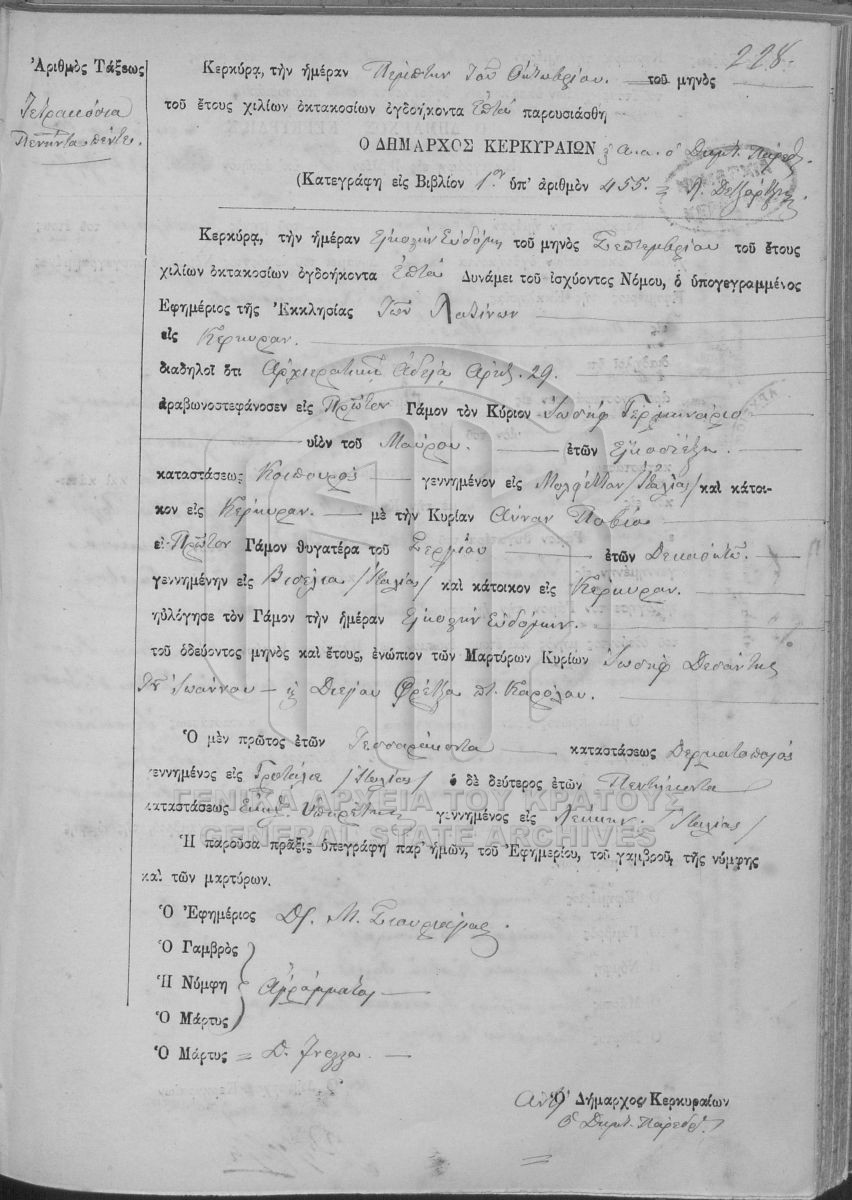 228.
Ἀριθμὸς Τάξεως
Τετρακόσια
Πενῆντα πέντε.
Κερκύρᾳ, τὴν ἡμέραν Πέμπτην Τοῦ Ὀκτωβρίου. τοῦ μηνὸς
τοῦ ἔτους χιλίων ὀκτακοσίων ὀγδοήκοντα Ἑπτά παρουσιάσθη
Ὁ ΔΗΜΑΡΧΟΣ ΚΕΡΚΥΡΑΙΩΝ α.α. ὁ Δημτ. Πάρεδ.
(Κατεγράφη εἰς Βιβλίον 1ον ὑπ' ἀριθμὸν 455.
Κερκύρᾳ, τὴν ἡμέραν Εἰκοστὴν Ἑυδόμη τοῦ μηνὸς Σεπτεμβρίου τοῦ ἔτους
χιλίων ὀκτακοσίων ὀγδοήκοντα Ἑπτά Δυνάμει τοῦ ἰσχύοντος Νόμου, ὁ ὑπογεγραμμένος
Ἐφημέριος τῆς Ἐκκλησίας Τῶν Λατίνων
εἰς Κέρκυραν.
διαδηλοῖ ὅτι Ἀρχιερατικῇ Ἀδείᾳ Ἀριθ. 29.
ἀραβωνοστεφάνοσεν εἰς Πρῶτον Γάμον τὸν Κύριον Ἰωσὴφ Γερμινάριο
υἱὸν τοῦ Μαύρου. ἐτῶν Εἰκοσιέξη.
καταστάσεως Κηπουρός γεννημένον εἰς Μολφέτταν /Ἰταλίας/ καὶ κάτοι-
κον εἰς Κέρκυραν. μὲ τὴν Κυρίαν Ἄνναν
εἰ Πρῶτον Γάμον θυγατέρα τοῦ Σεργίου ἐτῶν Δεκαοκτώ.
γεννημένην εἰς Βισέλια /Ἰταλίας/ καὶ κάτοικον εἰς Κέρκυραν.
ηὐλόγησε τὸν Γάμον τὴν ἡμέραν Εἰκοστὴν Ἑυδόμην.
τοῦ ὁδεύοντος μηνὸς καὶ ἔτους, ἐνώπιον τῶν Μαρτύρων Κυρίων Ἰωσὴφ Δεσάντης
Τοῦ Ἰωάννου καὶ Διέγου Φρέτζα πτ. Καρόλου.
Ὁ μὲν πρῶτος ἐτῶν Τεσσαράκοντα καταστάσεως Δερματοπολός
γεννημένος εἰς /Ἰταλίας/ ὁ δὲ δεύτερος ἐτῶν Πεντήκοντα
καταστάσεως Ἐκκλ. Ὑπηρέτης γεννημένος εἰς Λέκκην /Ἰταλίας/
Ἡ παροῦσα πρᾶξις ὑπεγράφη παρ' ἡμῶν, τοῦ Ἐφημερίου, τοῦ γαμβροῦ, τῆς νύμφης
καὶ τῶν μαρτύρων.
ΓΕΝΙΚΑ ΑΡΧΕΙΑ ΤΟΥ ΚΡΑΤΟΥΣ
GENERAL STATE ARCHIVES
Ὁ Ἐφημέριος
Ὁ Γαμβρὸς
Ἡ Νύμφη Ἀγράμματοι
Ὁ Μάρτυς
Ὁ Μάρτυς = Δ.
Ἀντ' Ὁ Δήμαρχος Κερκυραίων
ὁ Δημτ. Πάρεδρ.